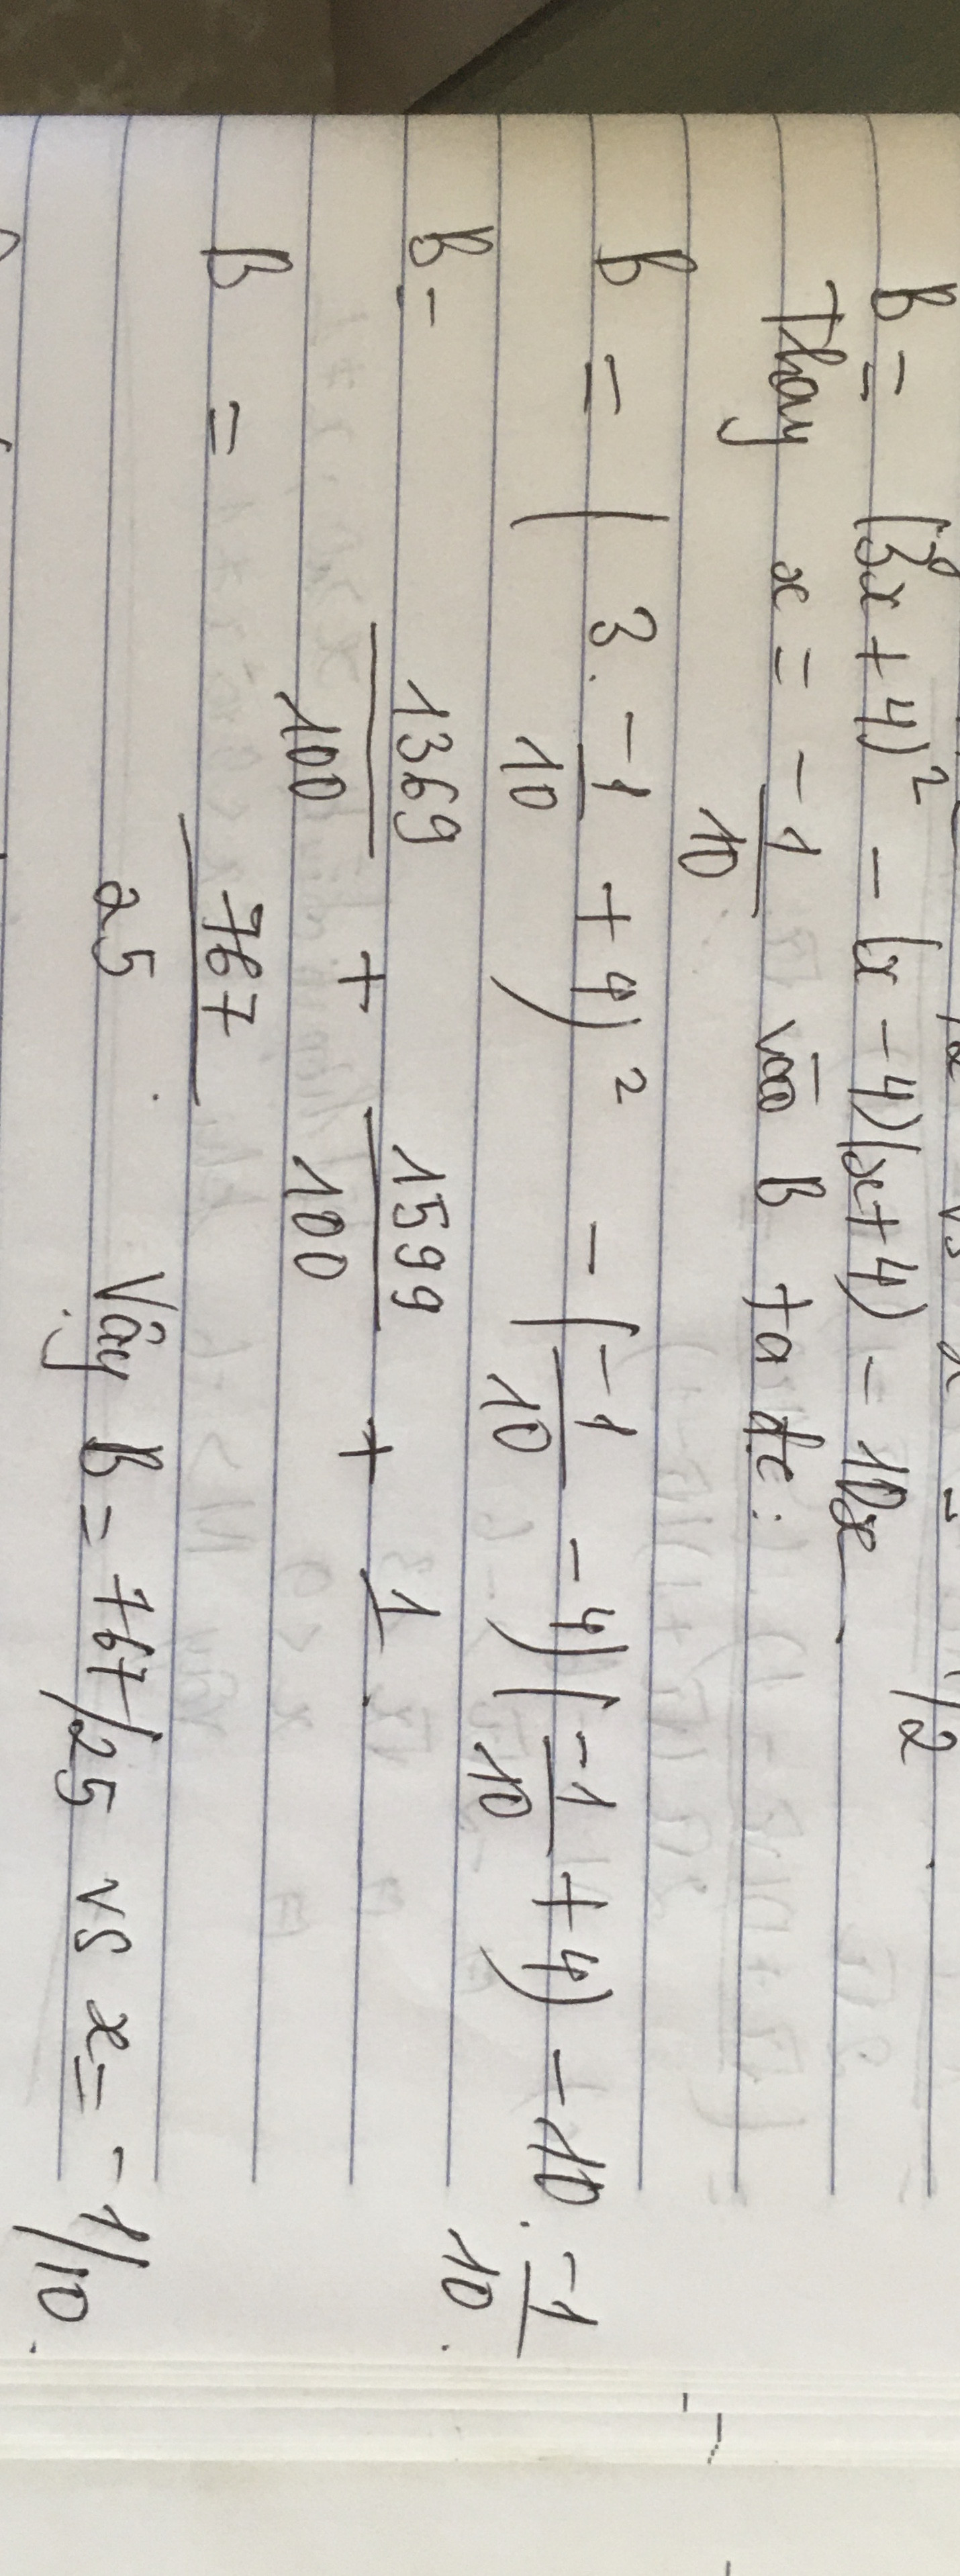 B = (3x + 4)² - (x - 4)(x + 4) - 10x
Thay x = -1/10 vào B ta đc:
B = (3. -1/10 + 4)² - (-1/10 - 4)(-1/10 + 4) - 10. -1/10.
B = 1369/100 + 1599/100 + 1.
B = 767/25. Vậy B = 767/25 vs x = -1/10.